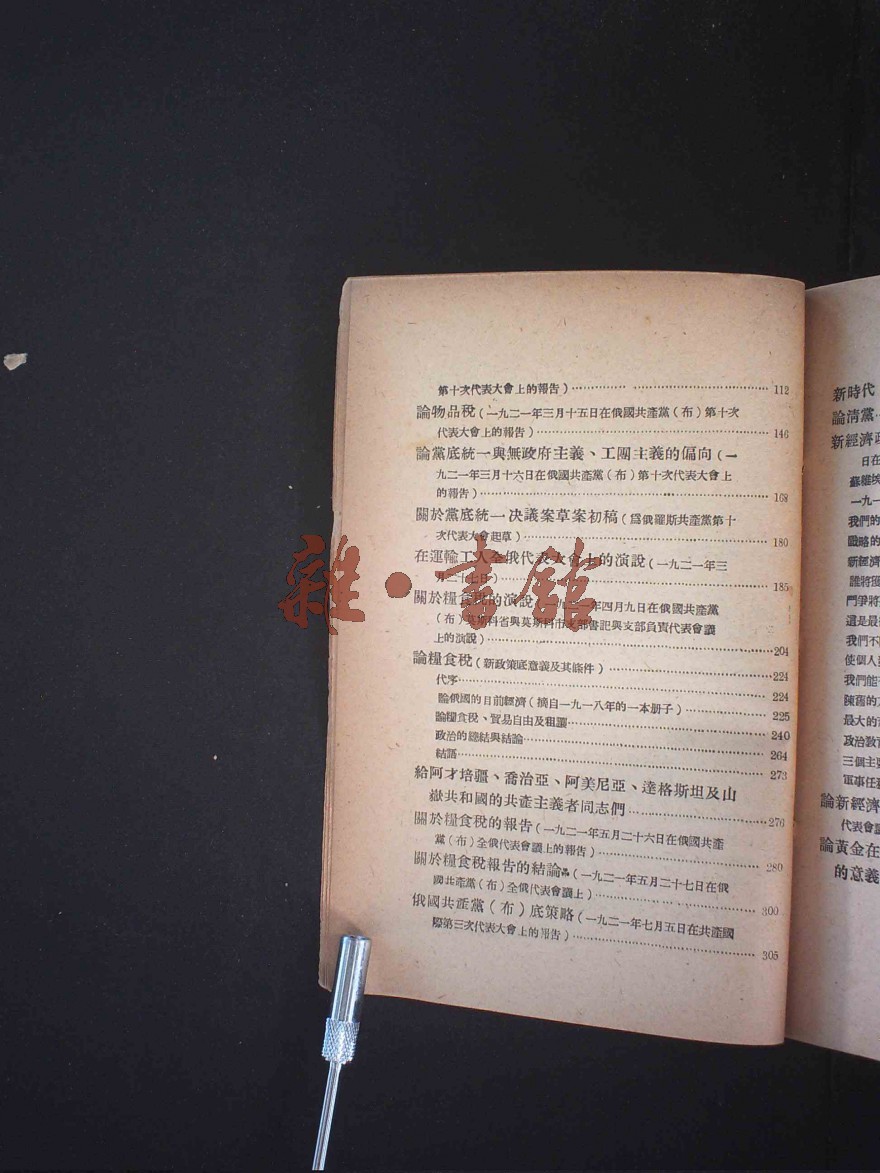 第十次代表大會上的報告)………… ……………………… 112
論物品稅(一九二一年三月十五日在俄國共產黨(布)第十次
代表大會上的報告)………………………………………… 146
論黨底統一與無政府主義、工團主義的偏向(一
九二一年三月十六日在俄國共產黨(布)第十次代表大會上
的報告)……………………………………………………… 168
關於黨底統一決議案草案初稿(爲俄羅斯共產黨第十
次代表大會起草)…………………………………………… 180
在運輸工人全俄代表大會上的演說(一九二一年三
月二十七日)………………………………………………… 185
關於糧食稅的演說(一九二一年四月九日在俄國共產黨
(布)莫斯科省與莫斯科市支部書記與支部負責代表會議
上的演說)……………………………………………………204
論糧食稅(新政策底意義及其條件)………………………224
代序…………………………………………………………… 224
論俄國的目前經濟(摘自一九一八年的一本册子)……… 225
論糧食稅、貿易自由及租讓………………………………… 240
政治的總結與結論…………………………………………… 264
結語…………………………………………………………… 273
給阿才培疆、喬治亞、阿美尼亞、達格斯坦及山
嶽共和國的共產主義者同志們………………………276
關於糧食稅的報告(一九二一年五月二十六日在俄國共產
黨(布)全俄代表會議上的報告)………………………… 280
關於糧食稅報告的結論(一九二一年五月二十七日在俄
國共產黨(布)全俄代表會議上)………………………… 300
俄國共產黨(布)底策略(一九二一年七月五日在共產國
際第三次代表大會上的報告)……………………………… 305
新時代
論清黨
新經濟政
日在
蘇維埃
一九一
我們的
戰略的
新經濟
誰將獲
鬥爭將
這是最
我們不
使個人
我們能
陳舊的
最大的
政治教育
三個主要
軍事任
論新經濟
代表會議
論黃金在
的意義
雜·書館